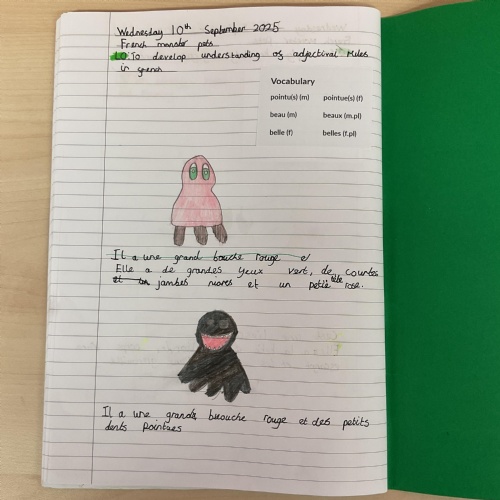 Wednesday 10th September 2025
French monster pets
LO: To develop understanding of adjectival rules
in french
Vocabulary
pointu(s) (m) pointue(s) (f)
beau (m) beaux (m.pl)
belle (f) belles (f.pl)
Il a une grand bouche rouge e
Elle a de grandes yeux vert, de courtes
et un jambes niores et un petite tête rose.
Il a une grande beouche rouge et des petits
dents pointues